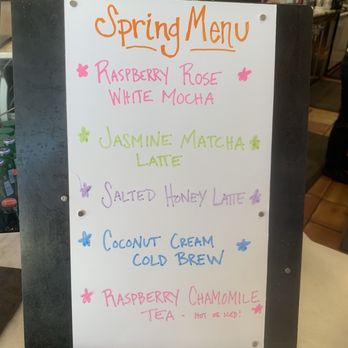 Spring Menu
RASPBERRY ROSE
WHITE MOCHA
JASMINE MATCHA
LATTE
SALTED HONEY LATTE
COCONUT CREAM
COLD BREW
RASPBERRY CHAMOMILE
TEA - HOT OR ICED!